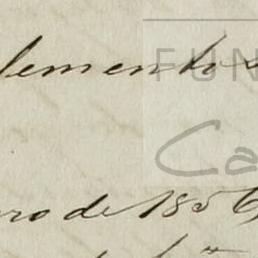 lemento
FUN
Ca
ro de 1856